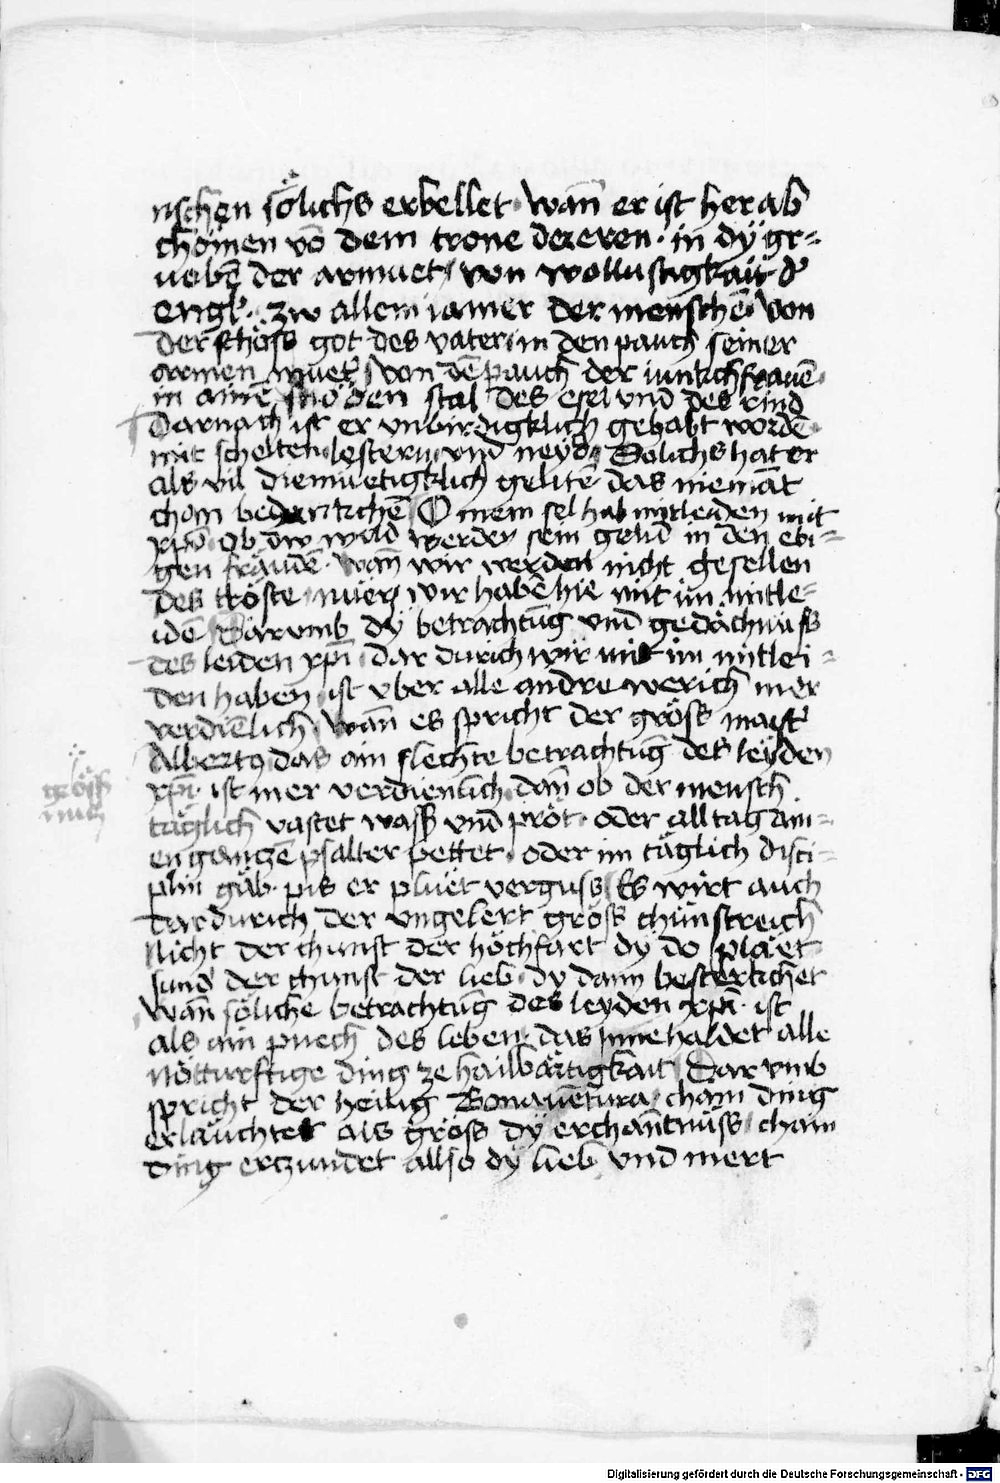 nschen sölichs erbellet · Wan̄ er ist her ab
chömen vō dem trone der eren · in dÿ gr=
uebē der armuet / von wollustigkait d'
engl' · zw allem iamer der menschē · Von
der schöss got des vater / in den pauch seiner
armen muet' / Von dē pauch der iunkchfrauē ·
in aine snöden stal des esel vnd des rind
Darnach ist er vnbirdigklich gehabt wordē ·
mit schelten · lestern · vnd neyd · Solichs hat er
als vil diemuetigklich gelitē · das niemāt
chom bedenkchē / O mein sel hab mitleiden mit
xpō · Ob dw wild werden sein gelid in den ebi=
gen fräudē · Wan̄ wir werden nicht gesellen
des tröste / nuer / wir habē hie mit im mitle=
idē / Darumb dÿ betrachtūg vnd gedächnüss
des leiden xpī / dar durich wir mit im mitlei=
den haben / ist vber alle andre werich mer
verdiēlich / Wan̄ es spricht der gröss maist'
Albertꝰ das ain slechte betrachtūg des leyden
xpī · ist mer verdienlich · dan̄ ob der mensch
täglich vastet wass' vnd pröt · oder alltag ain=
en ganczē psalter pettet · oder im täglich disci=
plin gäb · pis er pluet verguss / Es wirt auch
dardurich der vngelert gröss chünstreich
Nicht der chunst der höchfart dÿ do pläet
sund' der chunst der lieb · dy dann besterkchet
Wan̄ söliche betrachtūg des leyden xpī · ist
als ain puech des leben · das Inne haldet alle
nötturftige ding ze hailbärtigkait / Dar vmb
spricht der heilig Bonauētura / chain ding
erläuchtet als gröss dÿ erchantnüss / chain
ding erczundet allso dÿ lieb vnd mert
gröss